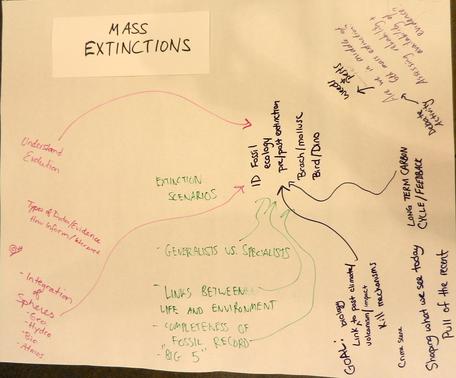 MASS
EXTINCTIONS
Understand
Evolution
Types of Data/Evidence
How Inform/
- Integration
of
Spheres
- Geo
- Hydro
- Bio
- Atmos
EXTINCTION
SCENARIOS
- GENERALISTS VS. SPECIALISTS
- LINKS BETWEEN
LIFE AND ENVIRONMENT
- COMPLETENESS OF
"FOSSIL RECORD"
- BIG 5"
ID Fossil
ecology
pre/post extinction
Brach/mollusc
Bird/Dino
GOAL: biology
Link to past climate/
volcanism/impact
Kill mechanisms
Crime scene
LONG TERM CARBON
CYCLE/FEEDBACK
Shaping what we see today
Pull of the recent
Are we in middle of
6th mass extinction?
Assessing reliability +
availability of
evidence
Debate
Activity